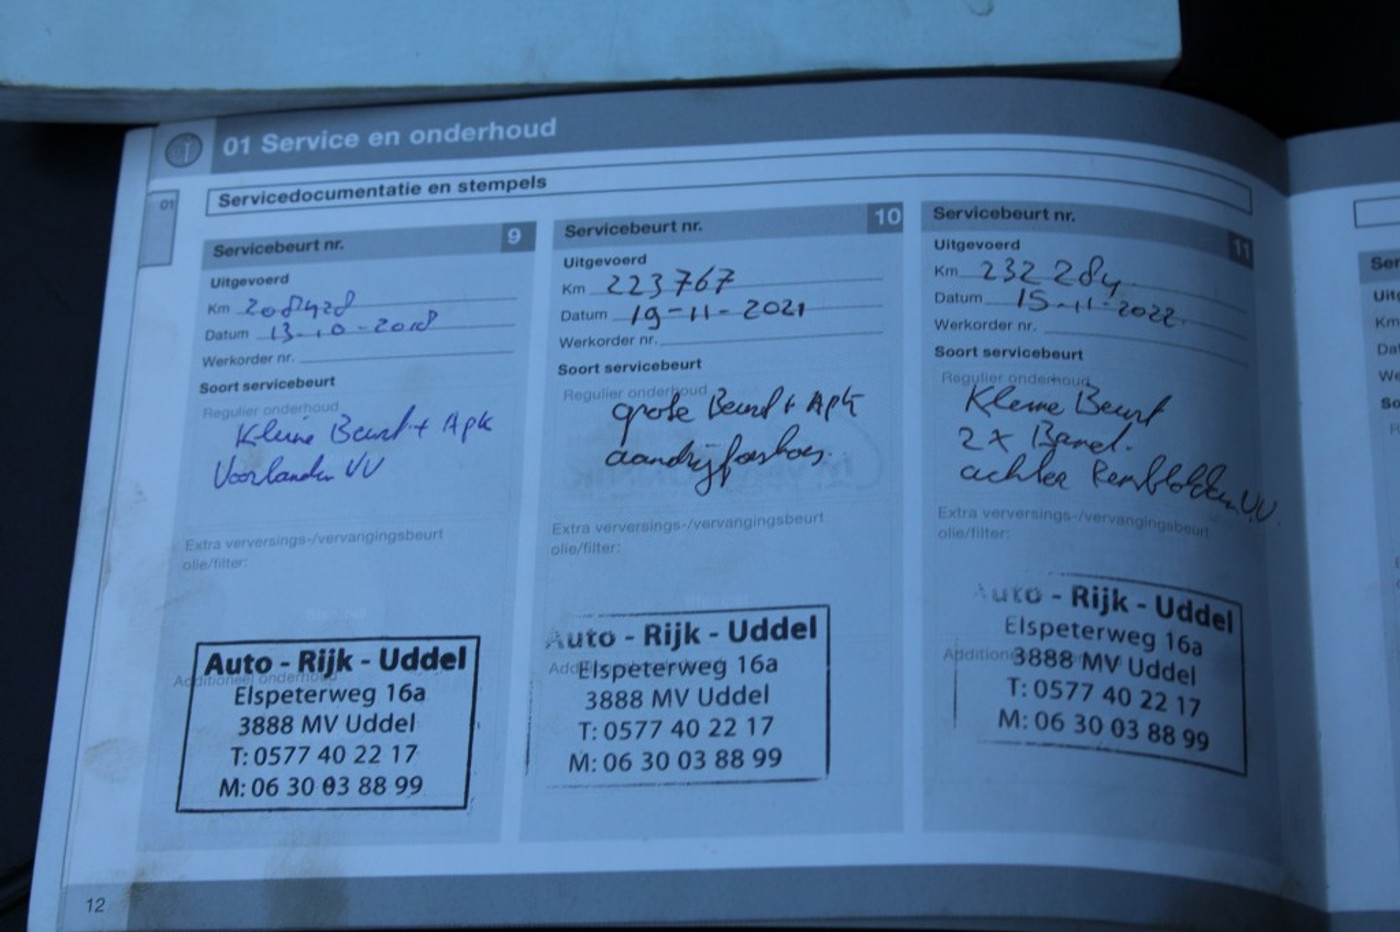 01 Service en onderhoud
01
Servicedocumentatie en stempels
Servicebeurt nr. 9
Uitgevoerd
Km 208428
Datum 13-10-2018
Werkorder nr.
Soort servicebeurt
Regulier onderhoud
Kleine Beurt + Apk
Voorbanden VV
Extra verversings-/vervangingsbeurt
olie/filter:
Additioneel onderhoud
Auto - Rijk - Uddel
Elspeterweg 16a
3888 MV Uddel
T: 0577 40 22 17
M: 06 30 03 88 99
Servicebeurt nr. 10
Uitgevoerd
Km 223767
Datum 19-11-2021
Werkorder nr.
Soort servicebeurt
Regulier onderhoud
grote Beurt + Apk
aandrijfashoes.
Extra verversings-/vervangingsbeurt
olie/filter:
Auto - Rijk - Uddel
Elspeterweg 16a
3888 MV Uddel
T: 0577 40 22 17
M: 06 30 03 88 99
Servicebeurt nr. 11
Uitgevoerd
Km 232284
Datum 15-11-2022
Werkorder nr.
Soort servicebeurt
Regulier onderhoud
Kleine Beurt
2x Band.
achter Remblokken VV.
Extra verversings-/vervangingsbeurt
olie/filter:
Auto - Rijk - Uddel
Elspeterweg 16a
3888 MV Uddel
T: 0577 40 22 17
M: 06 30 03 88 99
12